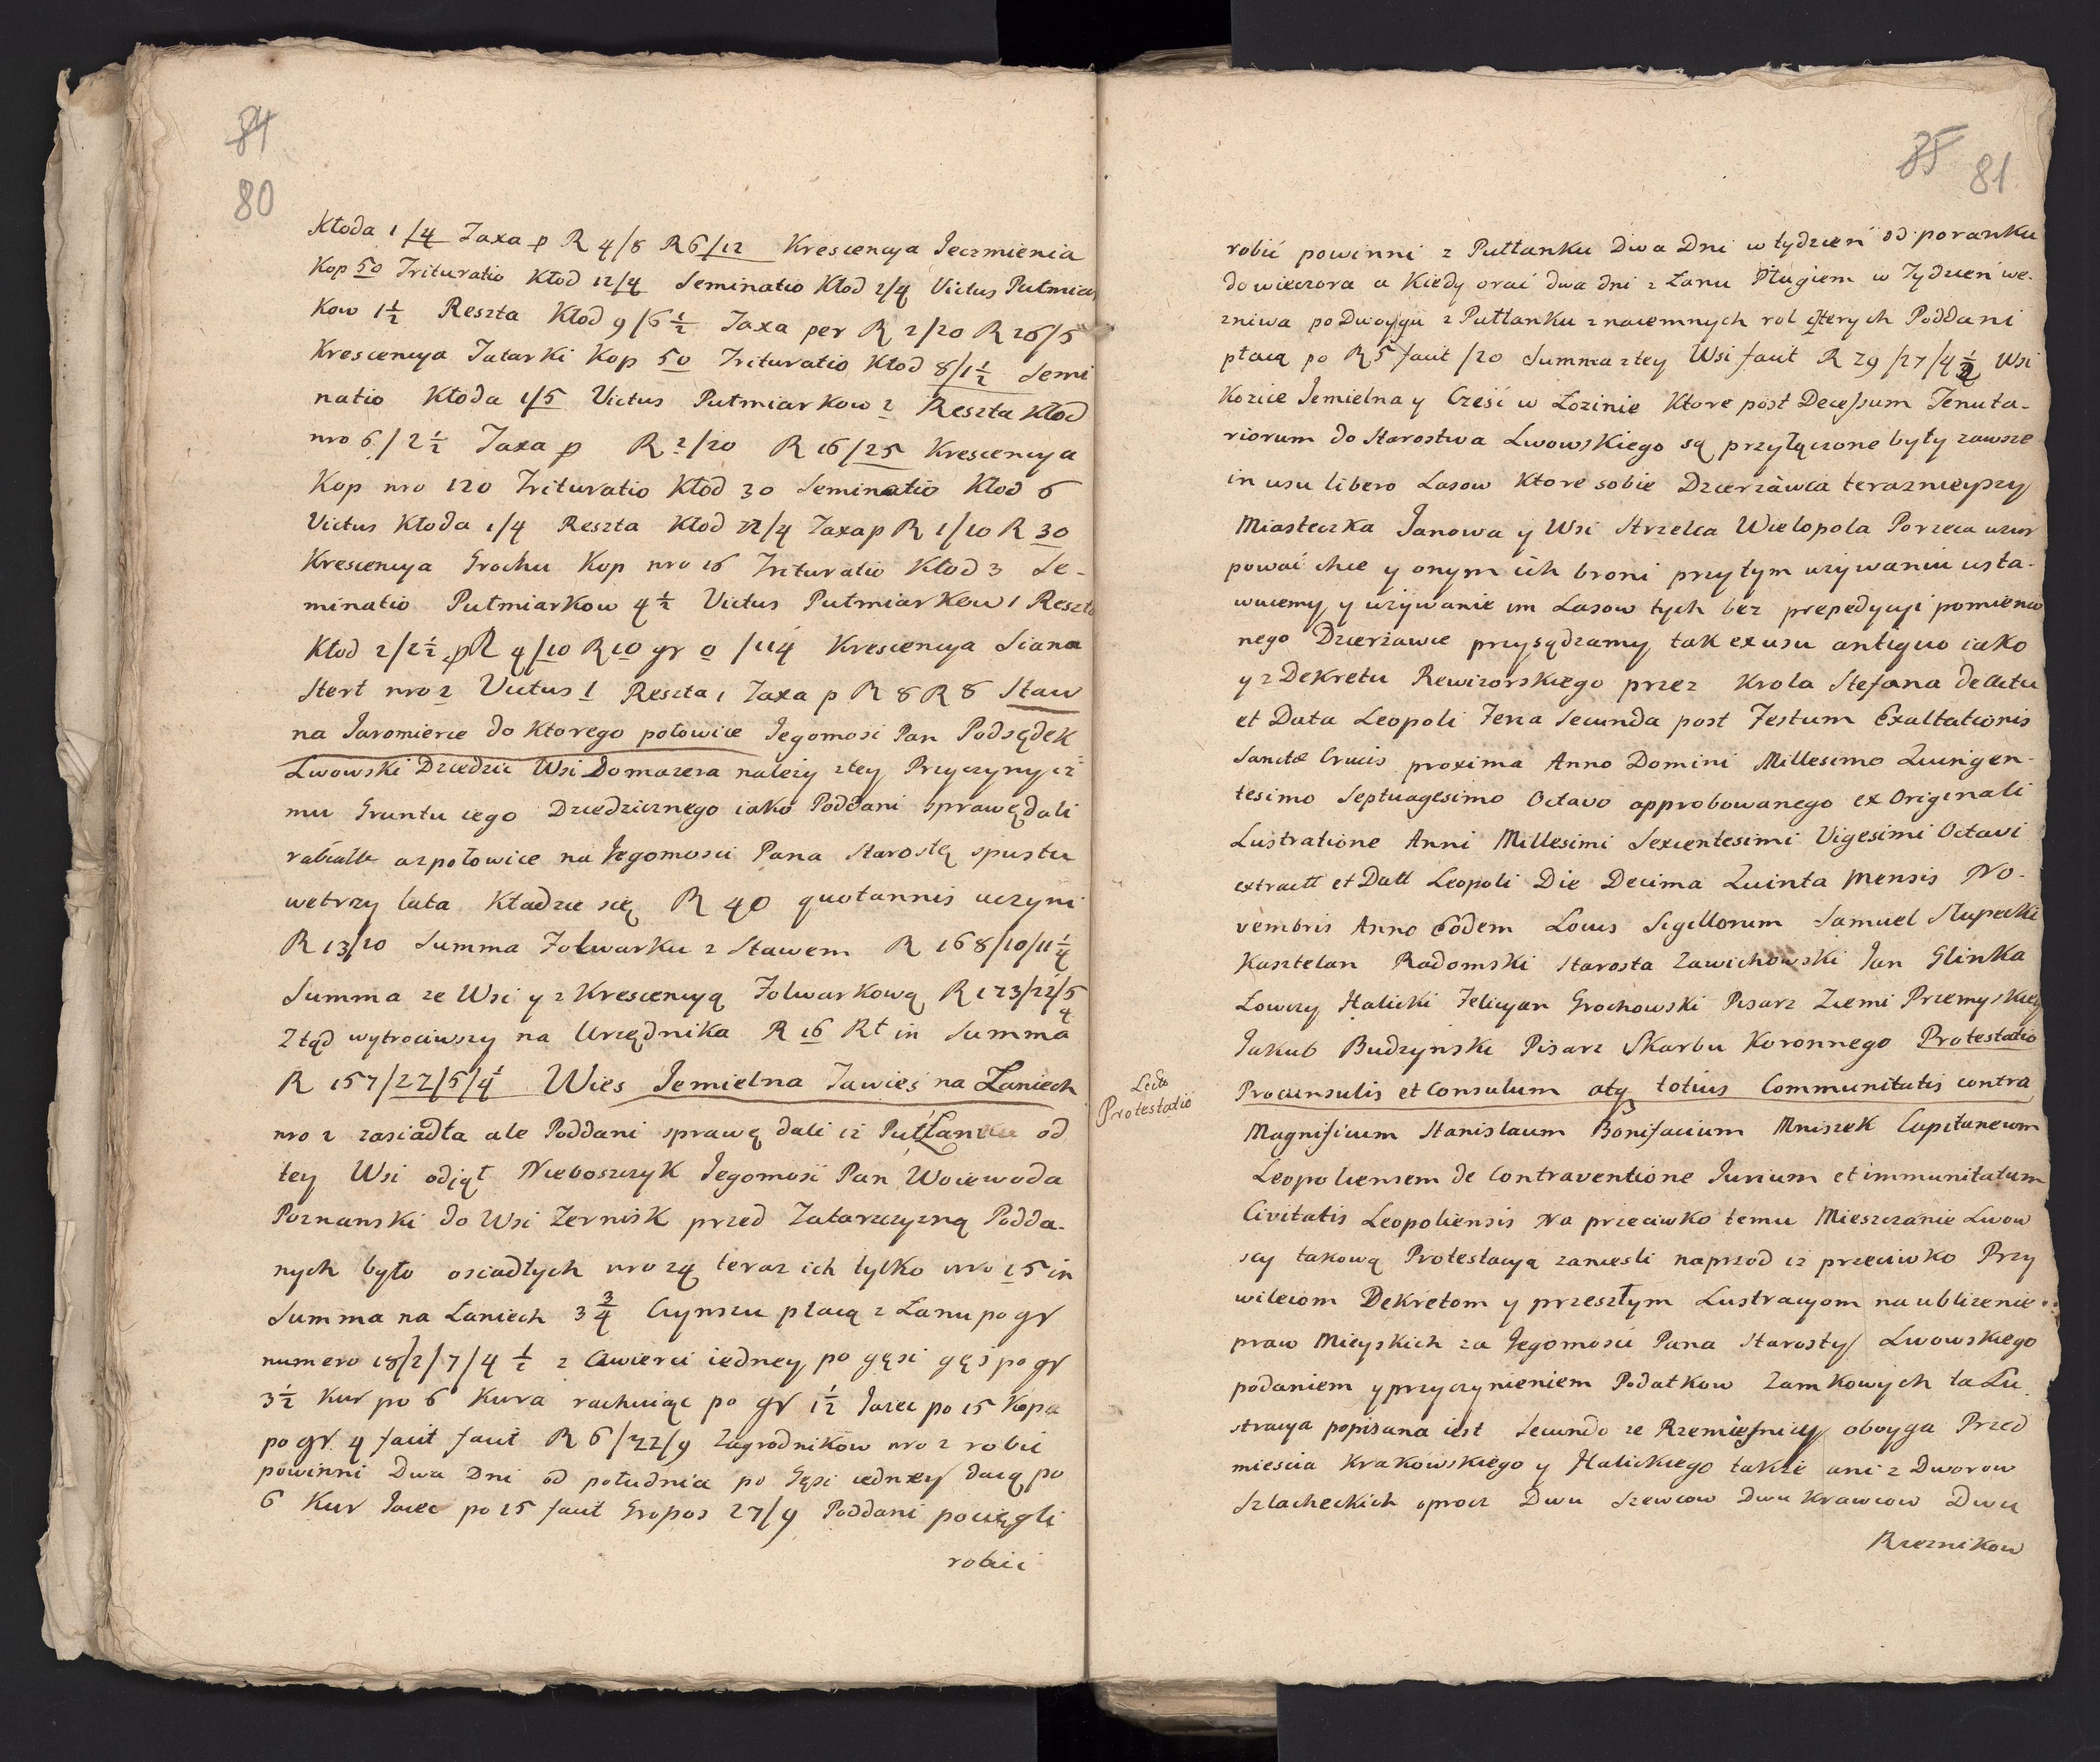 84
80
Kłoda 1/4 Taxa p R 4/8 R 6/12 Krescencya Jeczmienia
Kop 50 Trituratio Kłod 12/4 Seminatio Kłod 2/4 Victus Putmiar
Kow 1 1/2 Reszta Kłod 9/6 1/2 Taxa per R 2/20 R 26/5
Krescencya Tatarki Kop 50 Trituratio Kłod 8/1 1/2 Semi
natio Kłoda 1/5 Victus Putmiarkow 2 Reszta Kłod
nro 6/2 1/2 Taxa p R 2/20 R 16/25 Krescencya
Kop nro 120 Trituratio Kłod 30 Seminatio Kłod 6
Victus Kłoda 1/4 Reszta Kłod 22/4 Taxa p R 1/10 R 30
Krescencya Grochu Kop nro 16 Trituratio Kłod 3 Se-
minatio Putmiarkow 4 1/2 Victus Putmiarkow 1 Reszta
Kłod 2/2 1/2 p R 4/10 R 10 gr 0 /11 1/4 Krescencya Siana
Stert nro 2 Victus 1 Reszta 1 Taxa p R 8 R 8 Staw
na Jaromierce do Ktorego połowice Jegomosi Pan Podsędek
Lwowski Dziedzic Wsi Domazera należy ztey Przyczyny iż
mu Gruntu iego Dziedzicznego iako Poddani sprawę dali
az połowice na Jegomosci Pana Starostę spustu
wetrzy lata Kładzie się R 40 quotannis uczyni
R 13/10 Summa Folwarku z Stawem R 168/10/11 1/4
Summa ze Wsi y z Krescencyą Folwarkową R 173/22/5 1/4
Ztąd wytrąciwszy na Urzędnika R 16 Rt in Summa
R 157/22/5/4 1 Wies Jemielna Ta wieś na Łaniech
nro 2 zasiadła ale Poddani sprawę dali iż Putłanku od
tey Wsi odiął Nieboszczyk Jegomosi Pan Woiewoda
Poznanski do Wsi Zernisk przed Tatarszczyzną Podda-
nych było osiadłych nro 24 teraz ich tylko nro 15 in
Summa na Łaniech 3 3/4 Czynszu płacą z Łanu po gr
numero 18/2/7/4 1/2 z Cwierci iedney po gęsi gęś po gr
3 1/2 Kur po 6 Kura rachuiąc po gr 1 1/2 Jaiec po 15 Kopa
po gr 4 facit facit R 6/22/9 Zagrodnikow nro 2 robić
powinni Dwa Dni od południa po Gęsi iedney daią po
6 Kur Jaiec po 15 facit Gropos 27/9 Poddani pociągli
robici
85
81
robić powinni z Putłanku Dwa Dni w tydzień od poranku
do wieczora a Kiedy orać dwa dni z Łanu Pługiem w Tydzień we-
zniwa po Dwoygu z Putłanku z naiemnych rol Ktorych Poddani
płacą po R 5 facit /20 Summa ztey Wsi facit R 29/27/4 1/2 Wsi
Kozice Jemielna y Cześć w Łozinie Ktore post Decessum Tenuta-
riorum do Starostwa Lwowskiego są przyłączone były zawsze
in usu libero Lasow Ktore sobie Dzierżawca teraznieyszy
Miasteczka Janowa y Wsi Strzelca Wielopola Porzecza uzur
pować chce y onym ich broni przy tym używaniu usta-
wuiemy y używanie im Lasow tych bez prepedycyi pomienio
nego Dzierżawce przysądzamy tak ex usu antiquo iako
y z Dekretu Rewizorskiego przez Krola Stefana
et Data Leopoli Feria Secunda post Festum Exaltationis
Sanctæ Crucis proxima Anno Domini Millesimo Quingen-
tesimo Septuagesimo Octavo approbowanego ex Originali
Lustratione Anni Millesimi Sexcentesimi Vigesimi Octavi
extractt et Datt Leopoli Die Decima Quinta Mensis No-
vembris Anno Eodem Locus Sigillorum Samuel Słupecki
Kasztelan Radomski Starosta Zawichowski Jan Glinka
Łowczy Halicki Felicyan Grochowski Pisarz Ziemi Przemyskiey
Jakub Budzynski Pisarz Skarbu Koronnego Protestatio
Lecta
Protestatio
Proconsulis et Consulum atq totius Communitatis contra
Magnificum Stanislaum Bonifacium Mniszek Capitaneum
Leopoliensem de Contraventione Jurium et immunitatum
Civitatis Leopoliensis Na przeciwko temu Mieszczanie Lwow
scy takową Protestacyą zaniesli naprzod iz przeciwko Przy
wileiom Dekretom y przeszłym Lustracyom na ublizenie
praw Mieyskich za Jegomosci Pana Starosty Lwowskiego
podaniem y przyczynieniem Podatkow Zamkowych ta Lu
stracya popisana iest Secundo ze Rzemieśnicy oboyga Przed
miescia Krakowskiego y Halickiego także ani z Dworow
Szlacheckich oprocz Dwu Szewcow Dwu Krawcow Dwu
Rzeznikow